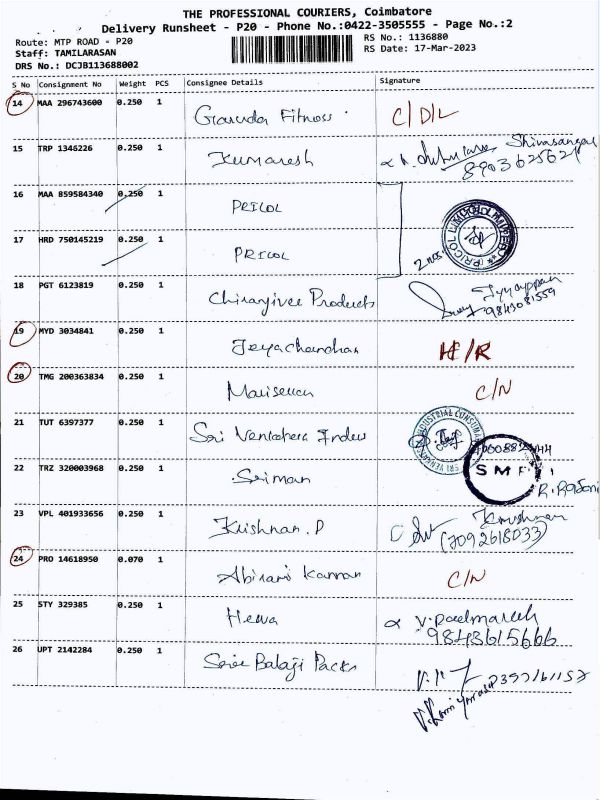 THE PROFESSIONAL COURIERS, Coimbatore
Delivery Runsheet - P20 - Phone No.:0422-3505555 - Page No.:2
Route: MTP ROAD - P20
RS No.: 1136880
Staff: TAMILARASAN
RS Date: 17-Mar-2023
DRS No.: DCJB113688002
S No Consignment No Weight PCS Consignee Details Signature
14 MAA 296743600 0.250 1 Garuda Fitness C/D/L
15 TRP 1346226 0.250 1 Kumaresh Shivasangar
8903625624
16 MAA 859584340 0.250 1 PRICOL
17 HRD 750145219 0.250 1 PRICOL 2 nos.
PRICOL LIMITED
18 PGT 6123819 0.250 1 Chiranjivee Products Iyyappan
9843081559
19 MYD 3034841 0.250 1 Jeyachandran
20 TMG 200363834 0.250 1 C/N
21 TUT 6397377 0.250 1 Sri Venkatera Indus
INDUSTRIAL
22 TRZ 320003968 0.250 1 Sriman SMF
23 VPL 401933656 0.250 1 Krishnan.P Krishnan
(7092618033)
24 PRO 14618950 0.070 1 Abirami Kannan C/N
25 STY 329385 0.250 1 Hewa
9843615666
26 UPT 2142284 0.250 1 Sree Balaji Packs